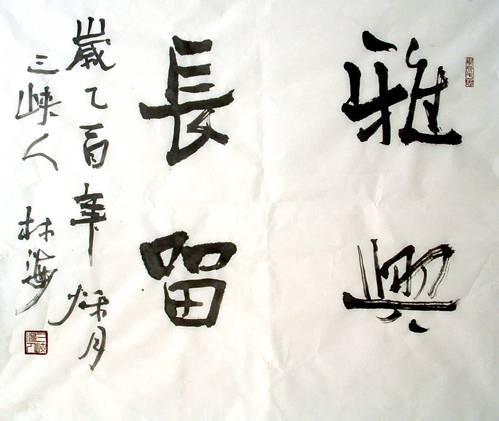 雅興
長留
歲乙酉年秋月
三峡人 林海